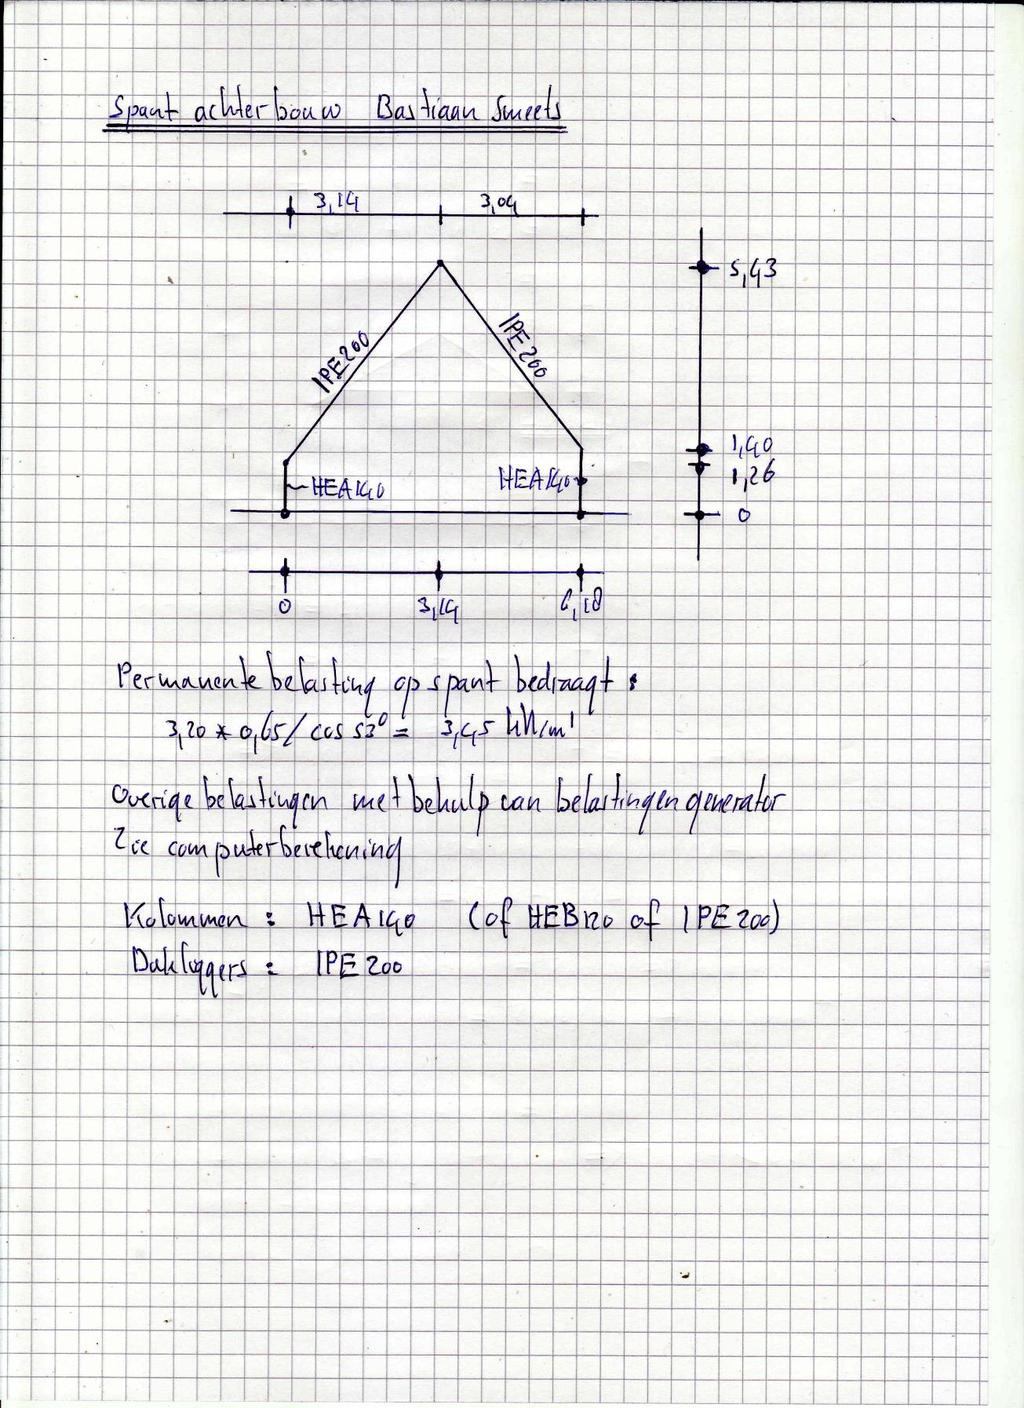 Spant achterbouw Bastiaan Smeets
3,14 3,04
5,43
IPE200
IPE200
1,40
1,26
HEA140
HEA140
0
0 3,14 6,18
Permanente belasting op spant bedraagt :
3,20 * 0,65 / cos 53° = 3,45 kN/m'
Overige belastingen met behulp van belastingen generator
Zie computerberekening
Kolommen : HEA140 (of HEB120 of IPE200)
Dakliggers : IPE200